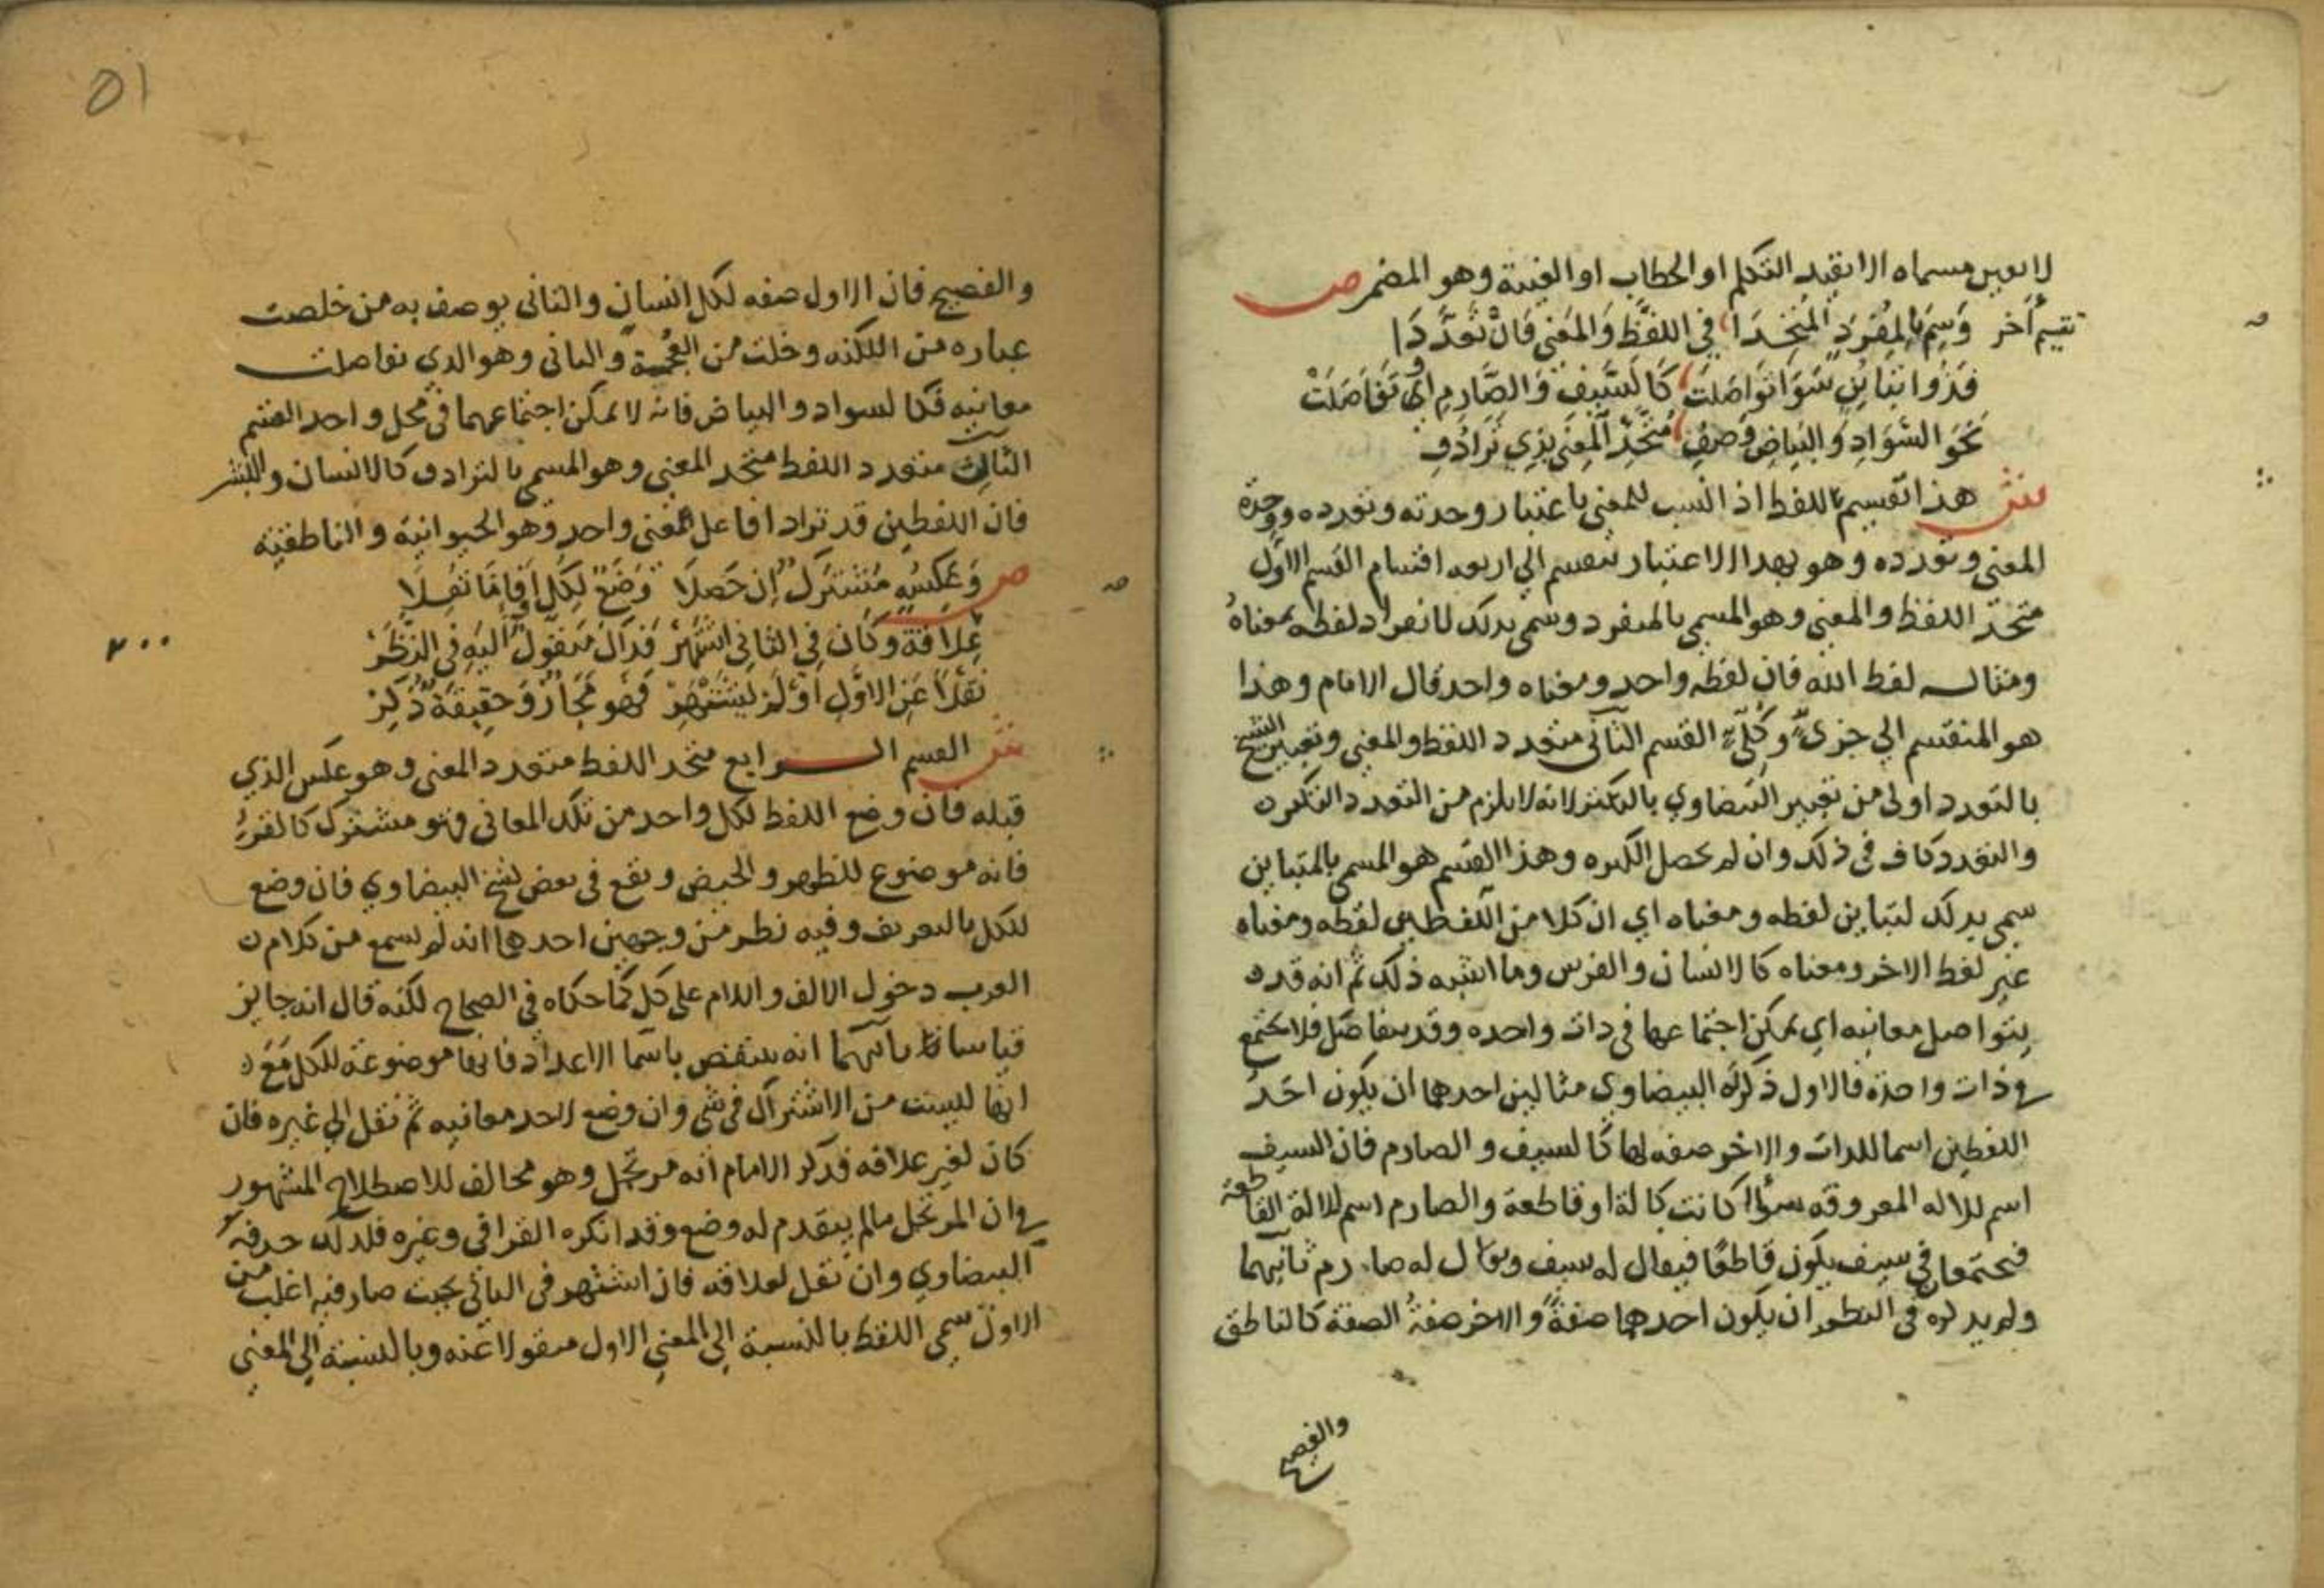 لا يعين مسماه الا بقيد التكلم او الخطاب او الغيبة وهو المضمر ص
تقسيم آخر وَسِمِ بالمُفْرَدِ المُتَّحِدَا في اللفْظِ وَالمَعْنى فَانْ تَعَدَّدَا
فَذُوا تَبَايُنٍ سَوَا تَوَاصَلَتْ كَالسَّيْفِ وَالصَّارِمِ اوْ تَفَاصَلَتْ
نَحْوَ السَّوَادِ وَالبَيَاضِ وَصِفِ مُتَّحِدْ المعنَى بِذِي تَرَادُفِ
ش هذا تقسيم للفظ اذا نسب للمعنى باعتبار وحدته وتعدده ووحدة
المعنى وتعدده وهو بهذا الاعتبار ينقسم الى اربعه اقسام القسم الاول
متحد اللفظ والمعنى وهو المسمى بالمنفرد وسمى بذلك لانفراد لفظه بمعناه
ومثاله لفظ الله فان لفظه واحد ومعناه واحد قال الامام وهذا
هو المنقسم الي جزئ وكلي القسم الثاني متعدد اللفظ والمعنى وتعبير الشيخ
بالتعدد اولى من تعبير البيضاوي بالتكثر لانه لا يلزم من التعدد التكثر
والتعدد كاف في ذلك وان لم تحصل الكثره وهذا القسم هو المسمى بالمتباين
سمى بذلك لتباين لفظه ومعناه اي ان كلا من اللفظين لفظه ومعناه
غير لفظ الاخر ومعناه كالانسان والفرس وما اشبه ذلك ثم انه قد
يتواصل معانيه اي يمكن اجتماعها في ذات واحده وقد يتفاصل فلا تجتمع
في ذات واحدة فالاول ذكر له البيضاوي مثالين احدهما ان يكون احد
اللفظين اسما للذات والاخر صفه لها كالسيف والصارم فان السيف
اسم للاله المعروفه سواء كانت كالة او قاطعة والصارم اسم للالة القاطعة
فيجتمعان في سيف يكون قاطعا فيقال له سيف ويقال له صارم ثانيهما
ولم يذكره في النظم ان يكون احدهما صفة والاخر صفة الصفة كالناطق
والفصيح
٥١
والفصيح فان الاول صفه لكل انسان والثاني يوصف به من خلصت
عباره من اللكنه وخلت من العجمة والثاني وهو الذي تفاصلت
معانيه فكالسواد والبياض فانه لا يمكن اجتماعهما في محل واحد القسم
الثالث متعدد اللفظ متحد المعنى وهو المسمى بالترادف كالانسان والبشر
فان اللفظين قد ترادفا على معنى واحد وهو الحيوانية والناطقية
ص وَعَكْسُهِ مُشْتَرَكٌ إن حَصَلَا وَضْعٌ لِكُلٍّ اوْ اِذا مَا نُقِلَا
عِلَاقَةٌ وَكَانَ فِي الثَّانِي اشْتَهَرْ فَذَاكَ مَنْقُولٌ اليهِ فِي النَّظَرْ
نَقْلًا عَنِ الاوَّلِ أوْ لَمْ يَشْتَهِرْ فَهُوَ مَجَازٌ وَحَقِيقَةٌ ذُكِرْ
ش القسم الرابع متحد اللفظ متعدد المعنى وهو عكس الذي
قبله فان وضع اللفظ لكل واحد من تلك المعاني فهو مشترك كالقرء
فانه موضوع للطهر والحيض ويقع في بعض نسخ البيضاوي فان وضع
للكل بالتعريف وفيه نظر من وجهين احدهما انه لم يسمع من كلام
العرب دخول الالف واللام على كل كما حكاه في الصحاح لكنه قال انه جايز
قياسا ثانيهما انه ينتقض باسما الاعداد فانها موضوعة للكل مع
انها ليست من الاشتراك في شي وان وضع لاحد معانيه ثم نقل الي غيره فان
كان لغير علاقه فذكر الامام انه مرتجل وهو مخالف للاصطلاح المشهور
في ان المرتجل مالم يتقدم له وضع وقد انكره القرافي وغيره فلذلك حذفه
البيضاوي وان نقل لعلاقه فان اشتهر في الثاني بحيث صار فيه اغلب من
الاول سمى اللفظ بالنسبة الى المعنى الاول منقولا عنه وبالنسبة الى المعنى